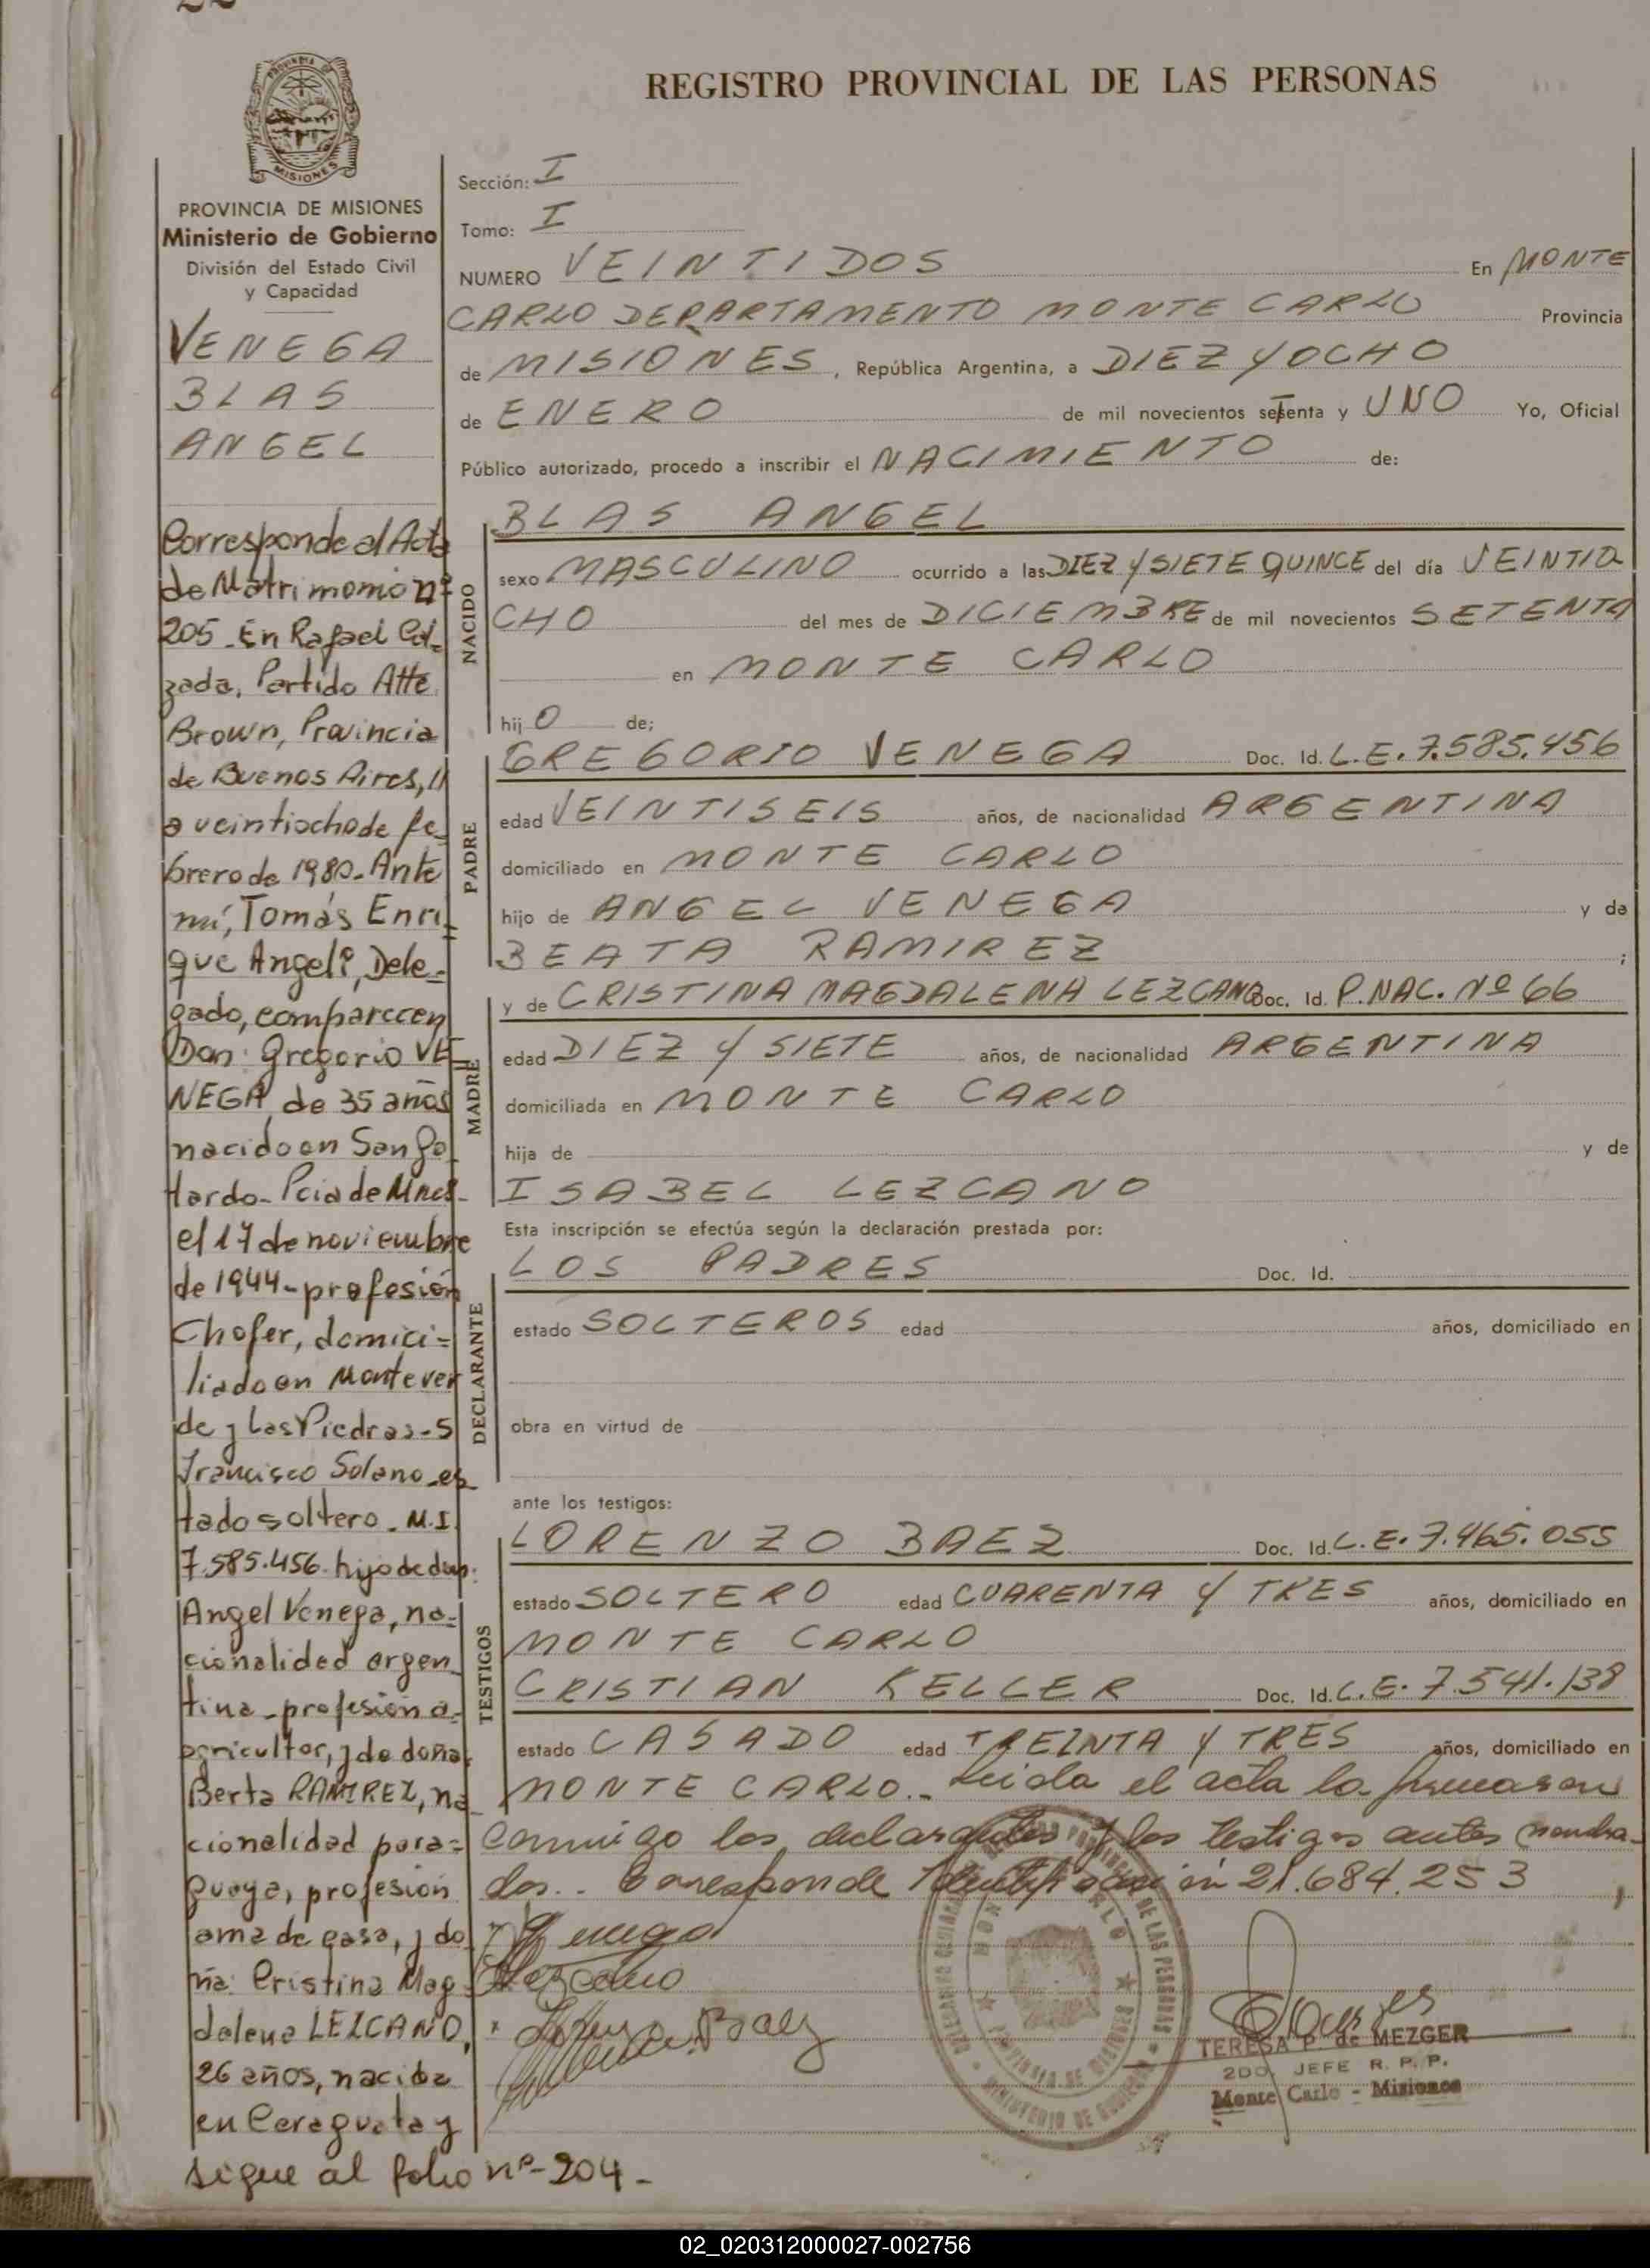 22
REGISTRO PROVINCIAL DE LAS PERSONAS
PROVINCIA DE MISIONES
Ministerio de Gobierno
División del Estado Civil
y Capacidad
VENEGA
BLAS
ANGEL
Corresponde al Acta
de Matrimonio nº
205. En Rafael Cal=
zada, Partido Alte
Brown, Provincia
de Buenos Aires,
a veintiocho de fe
brero de 1980. Ante
mí, Tomás Enri
que Angeli, Dele=
gado, comparecen
Don: Gregorio VE
NEGA, de 35 años
nacido en
el 17 de noviembre
de 1944 - profesión
Chofer, domici=
liado en Monte ver
de y Las Piedras - S
Francisco Solano, es
tado soltero. M.I.
7.585.456. hijo de don:
Angel Venega, na=
cionalidad argen
tina - profesión a=
gricultor, y de doña:
Berta RAMIREZ, na
cionalidad para=
guaya, profesión
ama de casa, y do
ña: Cristina Mag
dalena LEZCANO,
26 años, nacida
en Ceraguatay
sigue al folio nº 204 -
Sección: I
Tomo: I
NUMERO VEINTIDOS En MONTE
CARLO DEPARTAMENTO MONTE CARLO Provincia
de MISIONES, República Argentina, a DIEZ Y OCHO
de ENERO de mil novecientos setenta y UNO Yo, Oficial
Público autorizado, procedo a inscribir el NACIMIENTO de:
BLAS ANGEL
NACIDO
sexo MASCULINO ocurrido a las DIEZ Y SIETE QUINCE del día VEINTIO
CHO del mes de DICIEMBRE de mil novecientos SETENTA
en MONTE CARLO
hijO de;
PADRE
GREGORIO VENEGA Doc. Id. L.E. 7.585.456
edad VEINTISEIS años, de nacionalidad ARGENTINA
domiciliado en MONTE CARLO
hijo de ANGEL VENEGA y de
BEATA RAMIREZ ;
MADRE
y de CRISTINA MAGDALENA LEZCANO Doc. Id. P. NAC. Nº 66
edad DIEZ Y SIETE años, de nacionalidad ARGENTINA
domiciliada en MONTE CARLO
hija de y de
ISABEL LEZCANO
Esta inscripción se efectúa según la declaración prestada por:
DECLARANTE
LOS PADRES Doc. Id.
estado SOLTEROS edad años, domiciliado en
obra en virtud de
ante los testigos:
TESTIGOS
LORENZO BAEZ Doc. Id. L.E. 7.465.055
estado SOLTERO edad CUARENTA Y TRES años, domiciliado en
MONTE CARLO
CRISTIAN KELLER Doc. Id. L.E. 7.541.138
estado CASADO edad TREINTA Y TRES años, domiciliado en
MONTE CARLO.- Leida el acta la firmaron
conmigo los declarantes y los testigos antes nombra-
dos.. Corresponde Identificación 21.684.253
Venega
Lezcano
Baez
TERESA P. de MEZGER
2DO JEFE R. P. P.
Monte Carlo - Misiones
02_020312000027-002756